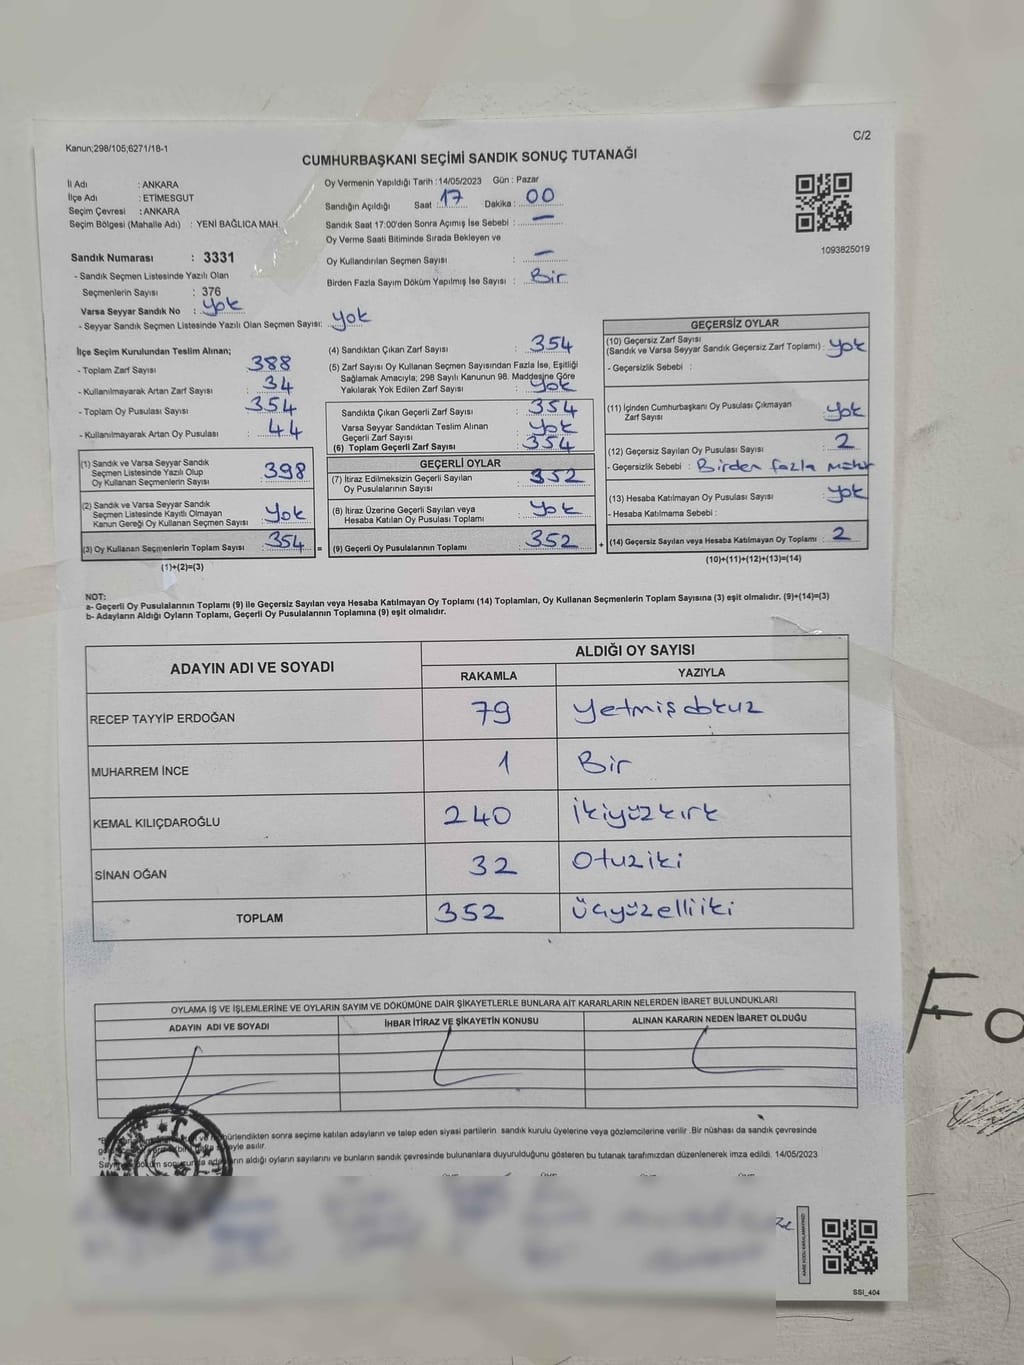 C/2
Kanun;298/105;6271/18-1
CUMHURBAŞKANI SEÇİMİ SANDIK SONUÇ TUTANAĞI
İl Adı : ANKARA
İlçe Adı : ETİMESGUT
Seçim Çevresi : ANKARA
Seçim Bölgesi (Mahalle Adı) : YENİ BAĞLICA MAH.
Sandık Numarası : 3331
- Sandık Seçmen Listesinde Yazılı Olan
Seçmenlerin Sayısı : 376
Varsa Seyyar Sandık No : Yok
- Seyyar Sandık Seçmen Listesinde Yazılı Olan Seçmen Sayısı: Yok
Oy Vermenin Yapıldığı Tarih : 14/05/2023 Gün : Pazar
Sandığın Açıldığı Saat : 17 Dakika : 00
Sandık Saat 17:00'den Sonra Açılmış İse Sebebi : —
Oy Verme Saati Bitiminde Sırada Bekleyen ve
Oy Kullandırılan Seçmen Sayısı : —
Birden Fazla Sayım Döküm Yapılmış İse Sayısı : Bir
1093825019
İlçe Seçim Kurulundan Teslim Alınan;
- Toplam Zarf Sayısı : 388
- Kullanılmayarak Artan Zarf Sayısı : 34
- Toplam Oy Pusulası Sayısı : 354
- Kullanılmayarak Artan Oy Pusulası : 44
(1) Sandık ve Varsa Seyyar Sandık
Seçmen Listesinde Yazılı Olup
Oy Kullanan Seçmenlerin Sayısı : 398
(2) Sandık ve Varsa Seyyar Sandık
Seçmen Listesinde Kayıtlı Olmayan
Kanun Gereği Oy Kullanan Seçmen Sayısı : Yok
(3) Oy Kullanan Seçmenlerin Toplam Sayısı : 354 =
(1)+(2)=(3)
(4) Sandıktan Çıkan Zarf Sayısı : 354
(5) Zarf Sayısı Oy Kullanan Seçmen Sayısından Fazla İse, Eşitliği
Sağlamak Amacıyla; 298 Sayılı Kanunun 98. Maddesine Göre
Yakılarak Yok Edilen Zarf Sayısı : Yok
Sandıkta Çıkan Geçerli Zarf Sayısı : 354
Varsa Seyyar Sandıktan Teslim Alınan
Geçerli Zarf Sayısı : Yok
(6) Toplam Geçerli Zarf Sayısı : 354
GEÇERLİ OYLAR
(7) İtiraz Edilmeksizin Geçerli Sayılan
Oy Pusulalarının Sayısı : 352
(8) İtiraz Üzerine Geçerli Sayılan veya
Hesaba Katılan Oy Pusulası Toplamı : Yok
(9) Geçerli Oy Pusulalarının Toplamı : 352 +
GEÇERSİZ OYLAR
(10) Geçersiz Zarf Sayısı
(Sandık ve Varsa Seyyar Sandık Geçersiz Zarf Toplamı) : Yok
- Geçersizlik Sebebi :
(11) İçinden Cumhurbaşkanı Oy Pusulası Çıkmayan
Zarf Sayısı : Yok
(12) Geçersiz Sayılan Oy Pusulası Sayısı : 2
- Geçersizlik Sebebi : Birden fazla mühür
(13) Hesaba Katılmayan Oy Pusulası Sayısı : Yok
- Hesaba Katılmama Sebebi :
(14) Geçersiz Sayılan veya Hesaba Katılmayan Oy Toplamı : 2
(10)+(11)+(12)+(13)=(14)
NOT:
a- Geçerli Oy Pusulalarının Toplamı (9) ile Geçersiz Sayılan veya Hesaba Katılmayan Oy Toplamı (14) Toplamları, Oy Kullanan Seçmenlerin Toplam Sayısına (3) eşit olmalıdır. (9)+(14)=(3)
b- Adayların Aldığı Oyların Toplamı, Geçerli Oy Pusulalarının Toplamına (9) eşit olmalıdır.
ADAYIN ADI VE SOYADI
ALDIĞI OY SAYISI
RAKAMLA YAZIYLA
RECEP TAYYİP ERDOĞAN 79 Yetmişdokuz
MUHARREM İNCE 1 Bir
KEMAL KILIÇDAROĞLU 240 İkiyüzkırk
SİNAN OĞAN 32 Otuziki
TOPLAM 352 Üçyüzelliiki
OYLAMA İŞ VE İŞLEMLERİNE VE OYLARIN SAYIM VE DÖKÜMÜNE DAİR ŞİKAYETLERLE BUNLARA AİT KARARLARIN NELERDEN İBARET BULUNDUKLARI
ADAYIN ADI VE SOYADI İHBAR İTİRAZ VE ŞİKAYETİN KONUSU ALINAN KARARIN NEDEN İBARET OLDUĞU
sonra seçime katılan adayların ve talep eden siyasi partilerin sandık kurulu üyelerine veya gözlemcilerine verilir. Bir nüshası da sandık çevresinde
asılır.
aldığı oyların sayılarını ve bunların sandık çevresinde bulunanlara duyurulduğunu gösteren bu tutanak tarafımızdan düzenlenerek imza edildi. 14/05/2023
SSI_404
Fo